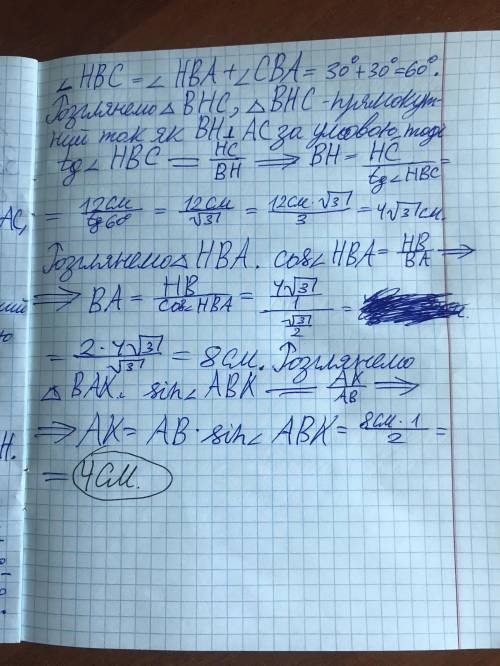 ∠HBC = ∠HBA + ∠CBA = 30° + 30° = 60°.
Розглянемо △BHC, △BHC - прямокут-
ний так як BH⊥AC за умовою, тоді
tg∠HBC = HC/BH ⟹ BH = HC/tg∠HBC =
AC, = 12см/tg60° = 12см/√3 = 12см·√3/3 = 4√3 см.
Розглянемо △HBA. cos∠HBA = HB/BA ⟹
⟹ BA = HB/cos∠HBA = (4√3/1)/(√3/2) =
= 2·4√3/√3 = 8см. Розглянемо
△BAK. sin∠ABK = AK/AB ⟹
⟹ AK = AB·sin∠ABK = 8см·1/2 =
H. = 4см.